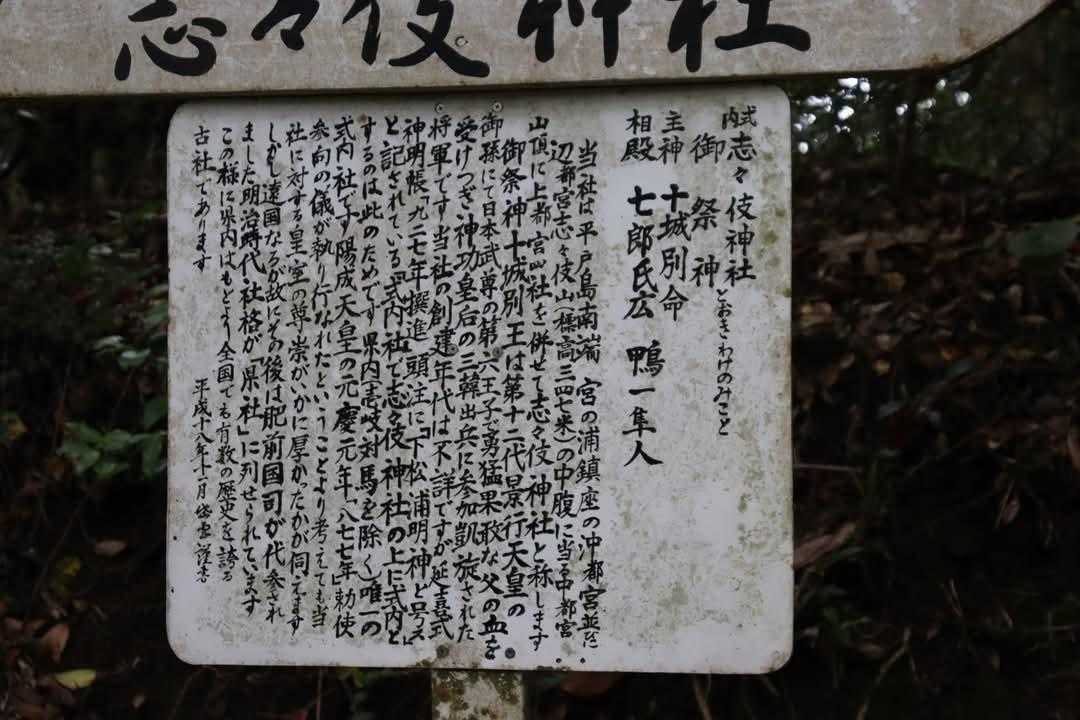 志々伎神社
式内 志々伎神社
御祭神 とおきわけのみこと
主神 十城別命
相殿 七郎氏広 鴨一隼人
当社は平戸島南端 宮の浦鎮座の沖都宮並に
辺都宮志々伎山(標高三四七米)の中腹に当る中都宮
山頂に上都宮四社を併せて志々伎神社と称します
御祭神十城別王は第十二代景行天皇の
御孫にて日本武尊の第六王子で勇猛果敢な父の血を
受けつぎ神功皇后の三韓出兵に参加凱旋された
将軍です当社の創建年代は不詳ですが延喜式
神明帳「九二七年撰進」頭注に「下松浦明神と号え」
と記されている式内社で志々伎神社の上に式内と
するのは此のためです県内(壱岐対馬を除く)唯一の
式内社です陽成天皇の元慶元年「八七七年」勅使
参向の儀が執り行なわれたということより考えても当
社に対する皇室の尊崇がいかに厚かったかが伺えます
しかし遠国なるが故にその後は肥前国司が代参され
ました明治時代社格が「県社」に列せられています
この様に県内はもとより全国でも有数の歴史を誇る
古社であります
平成十八年十一月 謹書